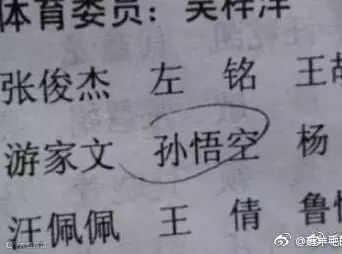 体育委员：吴梓洋
张俊杰 左 铭 王
游家文 孙悟空 杨
汪佩佩 王 倩 鲁